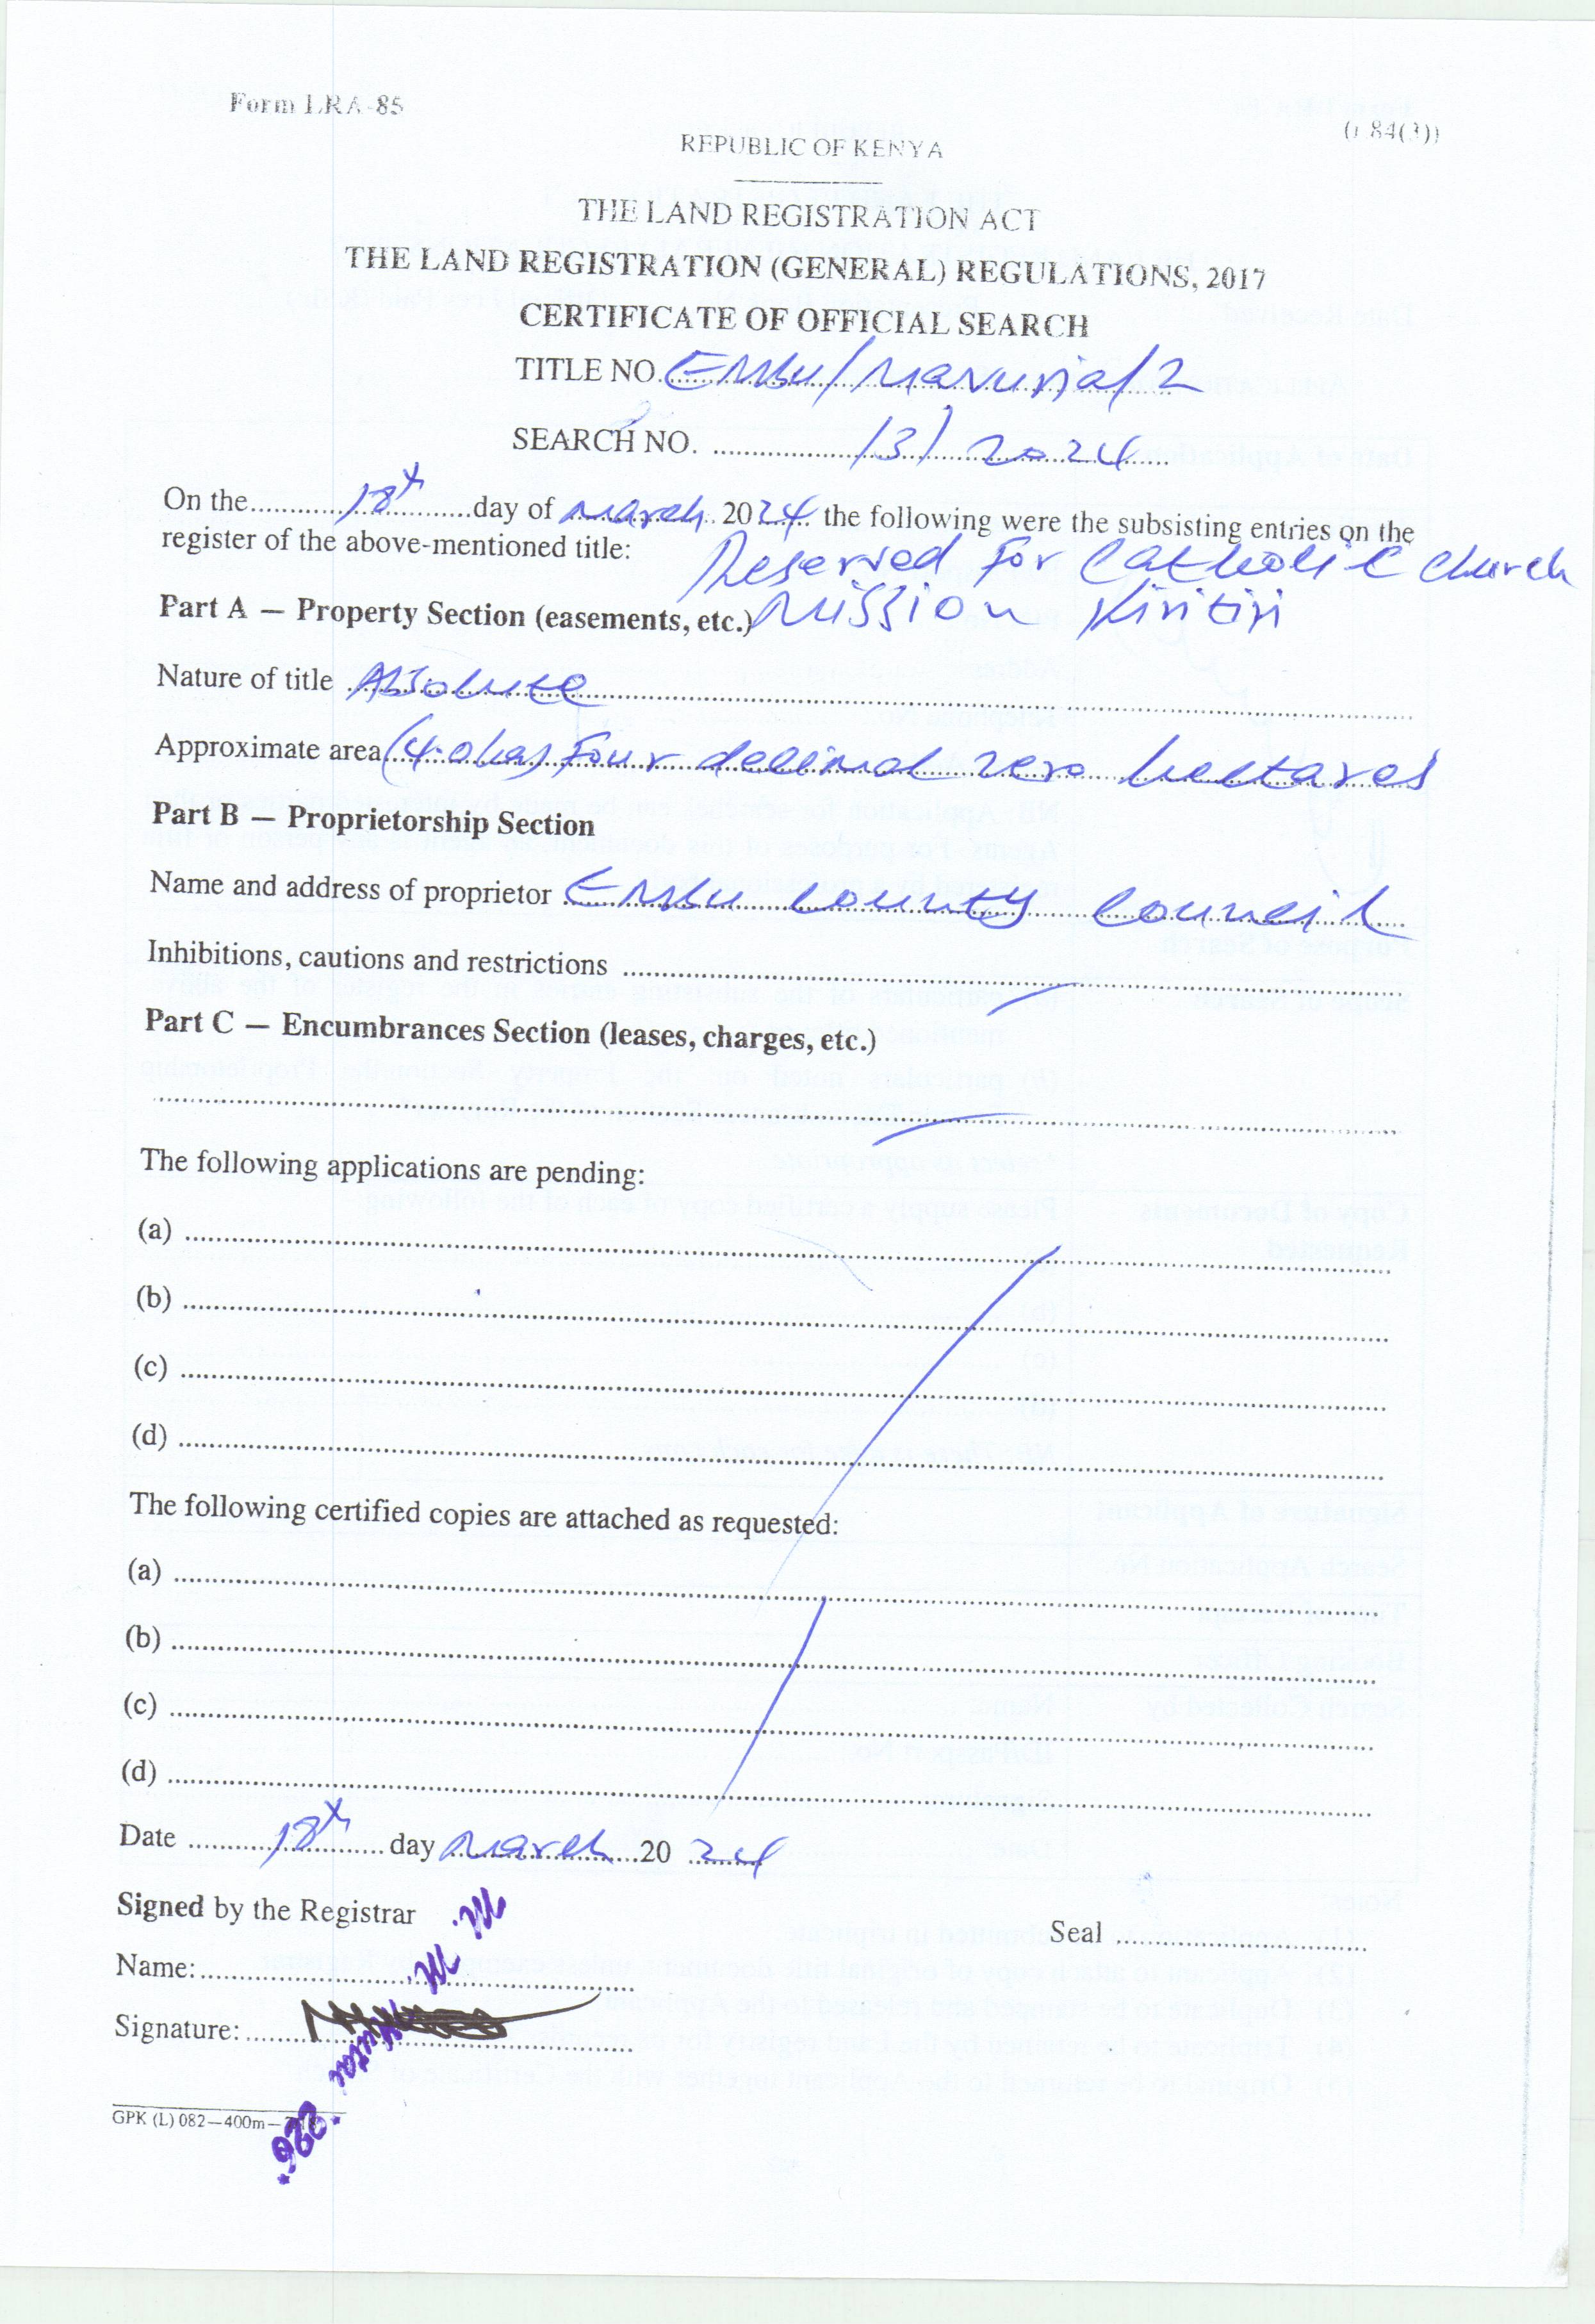 Form LRA-85
(r 84(3))
REPUBLIC OF KENYA
THE LAND REGISTRATION ACT
THE LAND REGISTRATION (GENERAL) REGULATIONS, 2017
CERTIFICATE OF OFFICIAL SEARCH
TITLE NO. Embu/Mavuria/2
SEARCH NO. /3/2024
On the 18th day of March 2024 the following were the subsisting entries on the
register of the above-mentioned title: Reserved For Catholic Church
Part A — Property Section (easements, etc.) Mission Kiritiri
Nature of title Absolute
Approximate area (4.0ha) Four decimal zero hectares
Part B — Proprietorship Section
Name and address of proprietor Embu County Council
Inhibitions, cautions and restrictions
Part C — Encumbrances Section (leases, charges, etc.)
The following applications are pending:
(a)
(b)
(c)
(d)
The following certified copies are attached as requested:
(a)
(b)
(c)
(d)
Date 18th day March 2024
Signed by the Registrar
Seal
Name:
Signature:
M. M.
226
GPK (L) 082—400m—